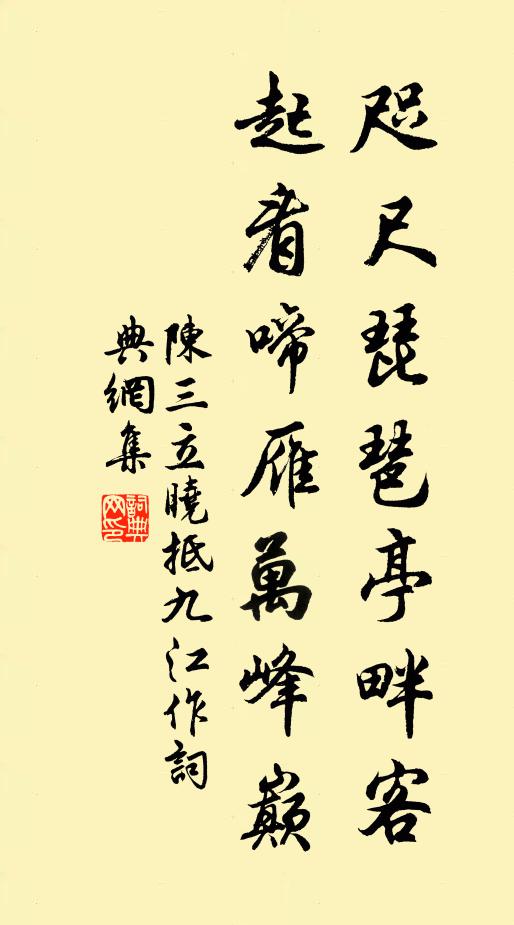 咫尺琵琶亭畔客
起看啼雁萬峰巔
陳三立曉抵九江作詞
典網集
詞典
网印